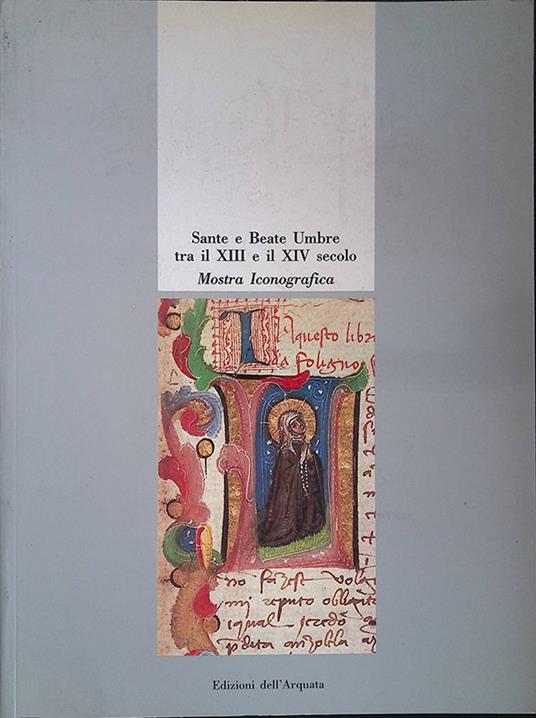 Sante e Beate Umbre
tra il XIII e il XIV secolo
Mostra Iconografica
I questo libr
da foligno
no
mi reputo
iqual
Edizioni dell'Arquata